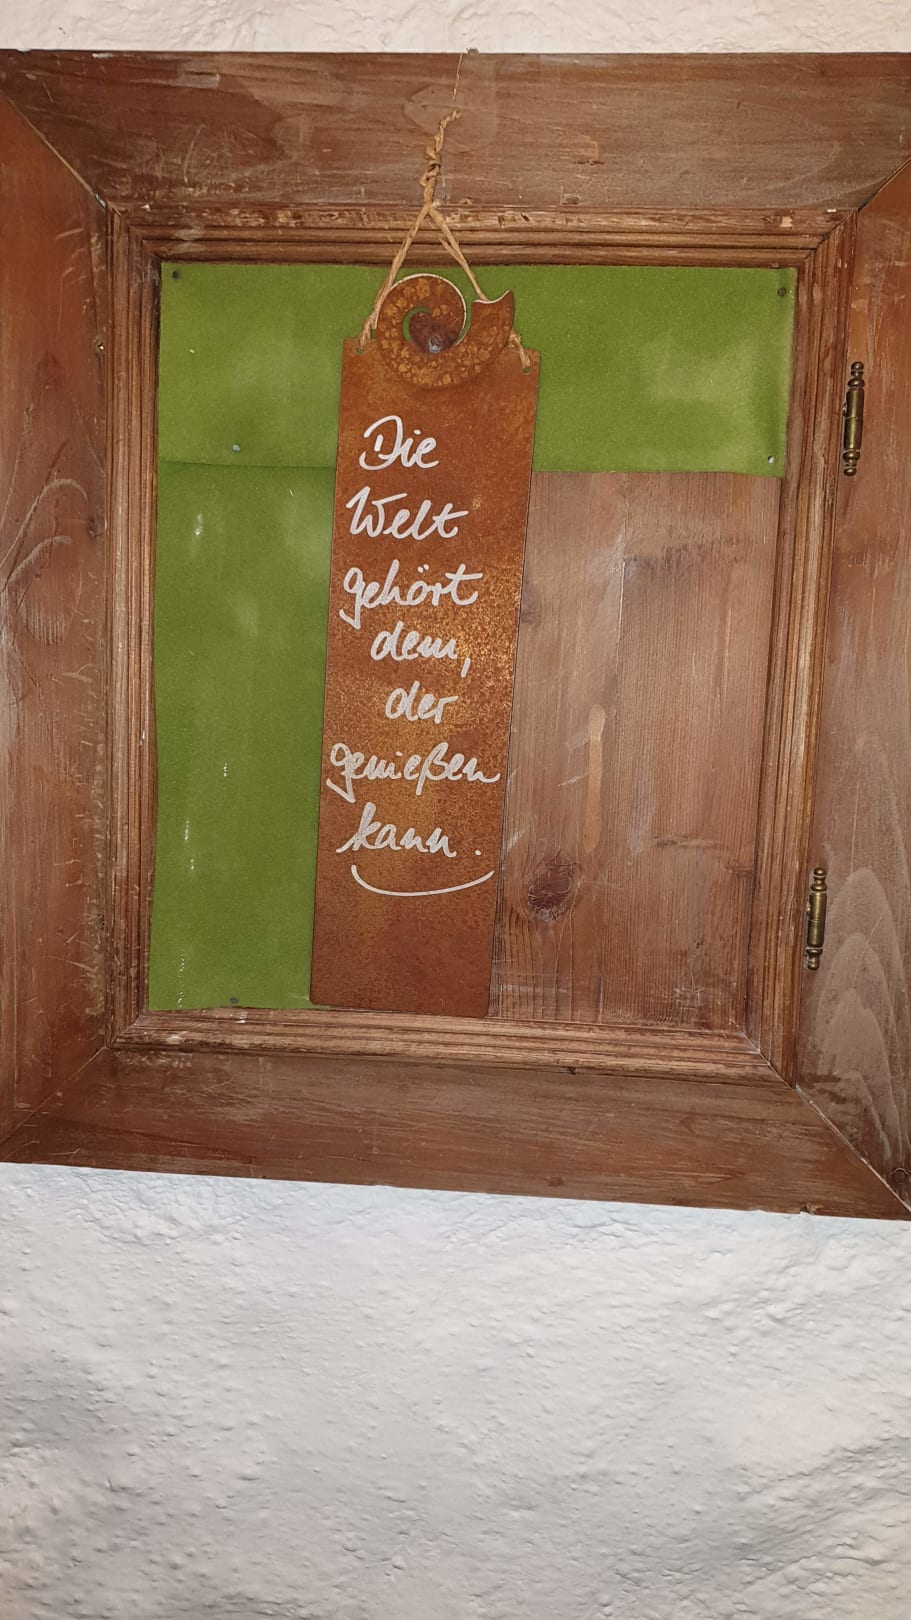 Die
Welt
gehört
dem,
der
genießen
kann.